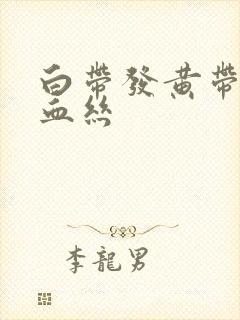 白帶發黃帶
血絲
李龍男